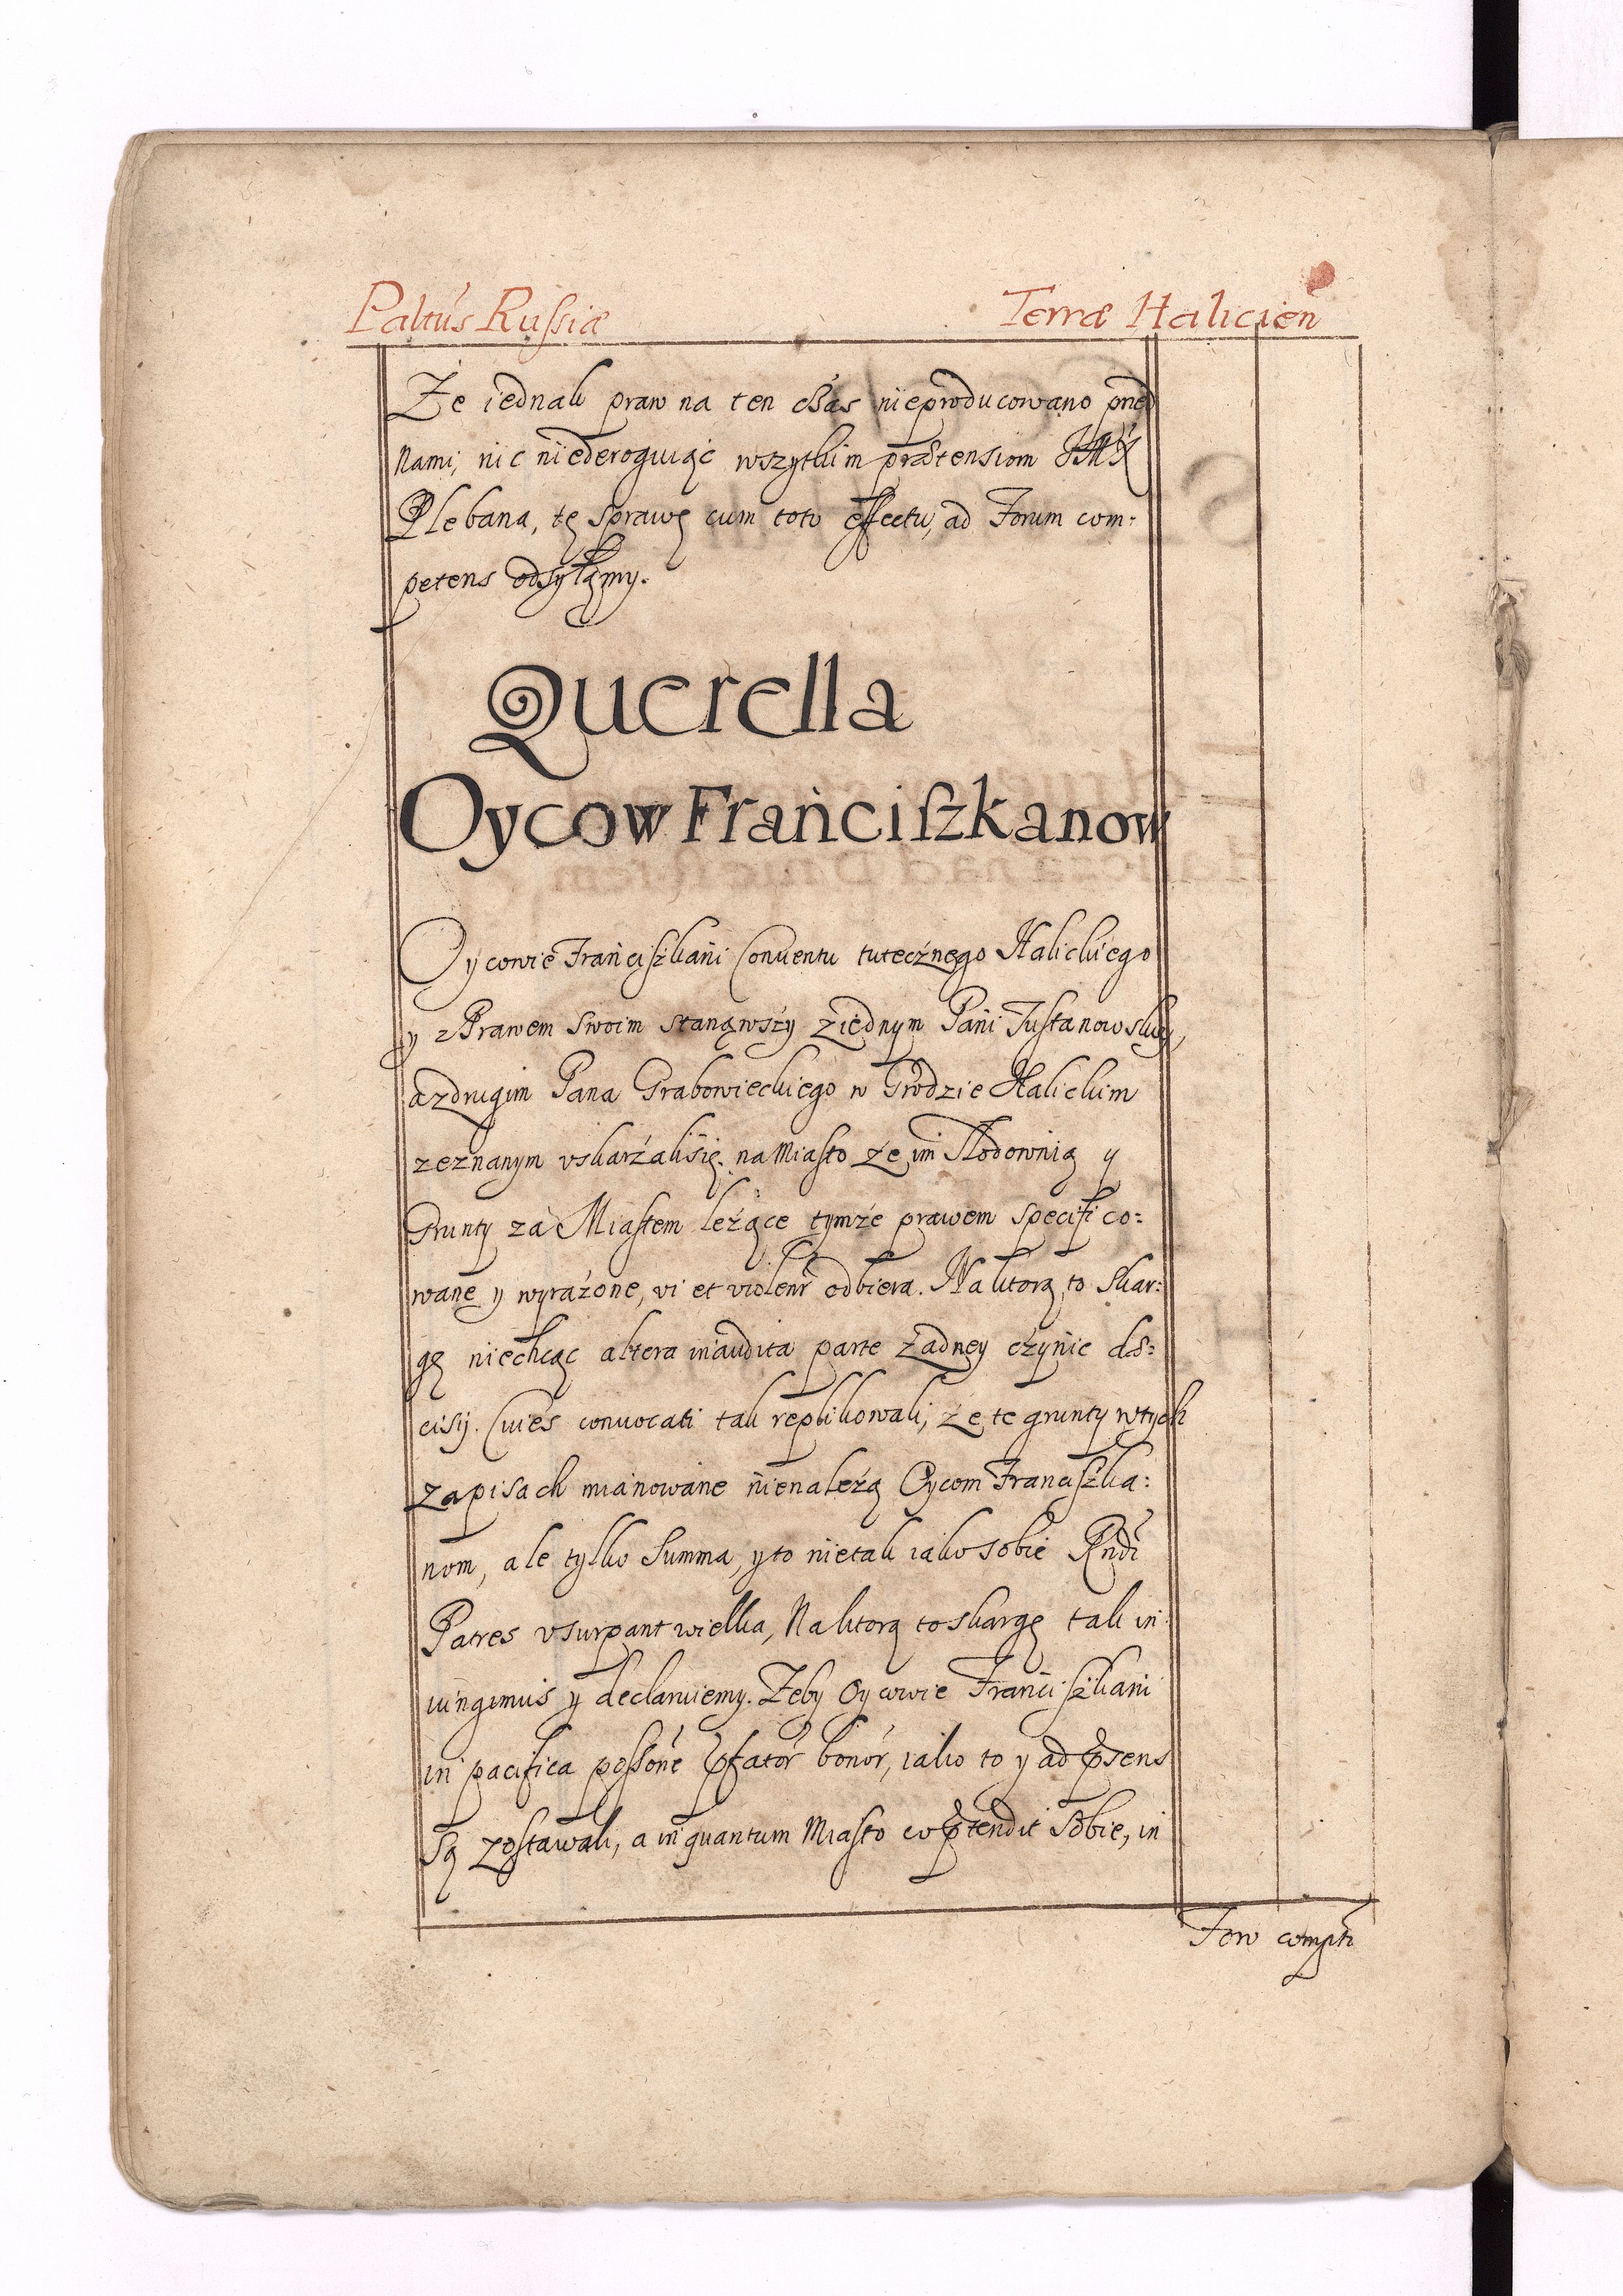 Paltus Russiæ Terræ Halicien
Że iednak praw na ten czas nieproducowano przed
Nami, nic niederoguiąc wszytkim prætensiom
Plebana, tę sprawę cum toto effectu, ad Forum com=
petens odsyłamy.
Querella
Oycow Franciszkanow
Oycowie Franciszkani Conuentu tutecznego Halickiego
y z Prawem swoim stanąwszy z iednym Pani Justanowskiey,
a z drugim Pana Grabowieckiego w Grodzie Halickim
zeznanym vskarżali się na Miasto że im Słodownią y
Grunty za Miastem leżące tymże prawem specifico=
wane y wyrażone, vi et violenr odbiera. Na ktorą to skar=
gę niechcąc altera inaudita parte żadney czynic de=
cisij. Ciues conuocati tak replikowali, że te grunty w tych
zapisach mianowane nienależą Oycom Franciszka=
nom, ale tylko Summa, y to nie tak iako sobie Rndi
Patres vsurpant wielka, Na ktorą to skargę tak in=
iungimus y declaruiemy. Żeby Oycowie Franciszkani
in pacifica possone pfator bonor, iako to y ad psens
są zostawali, a inquantum Miasto co ptendit sobie, in
Foro compti